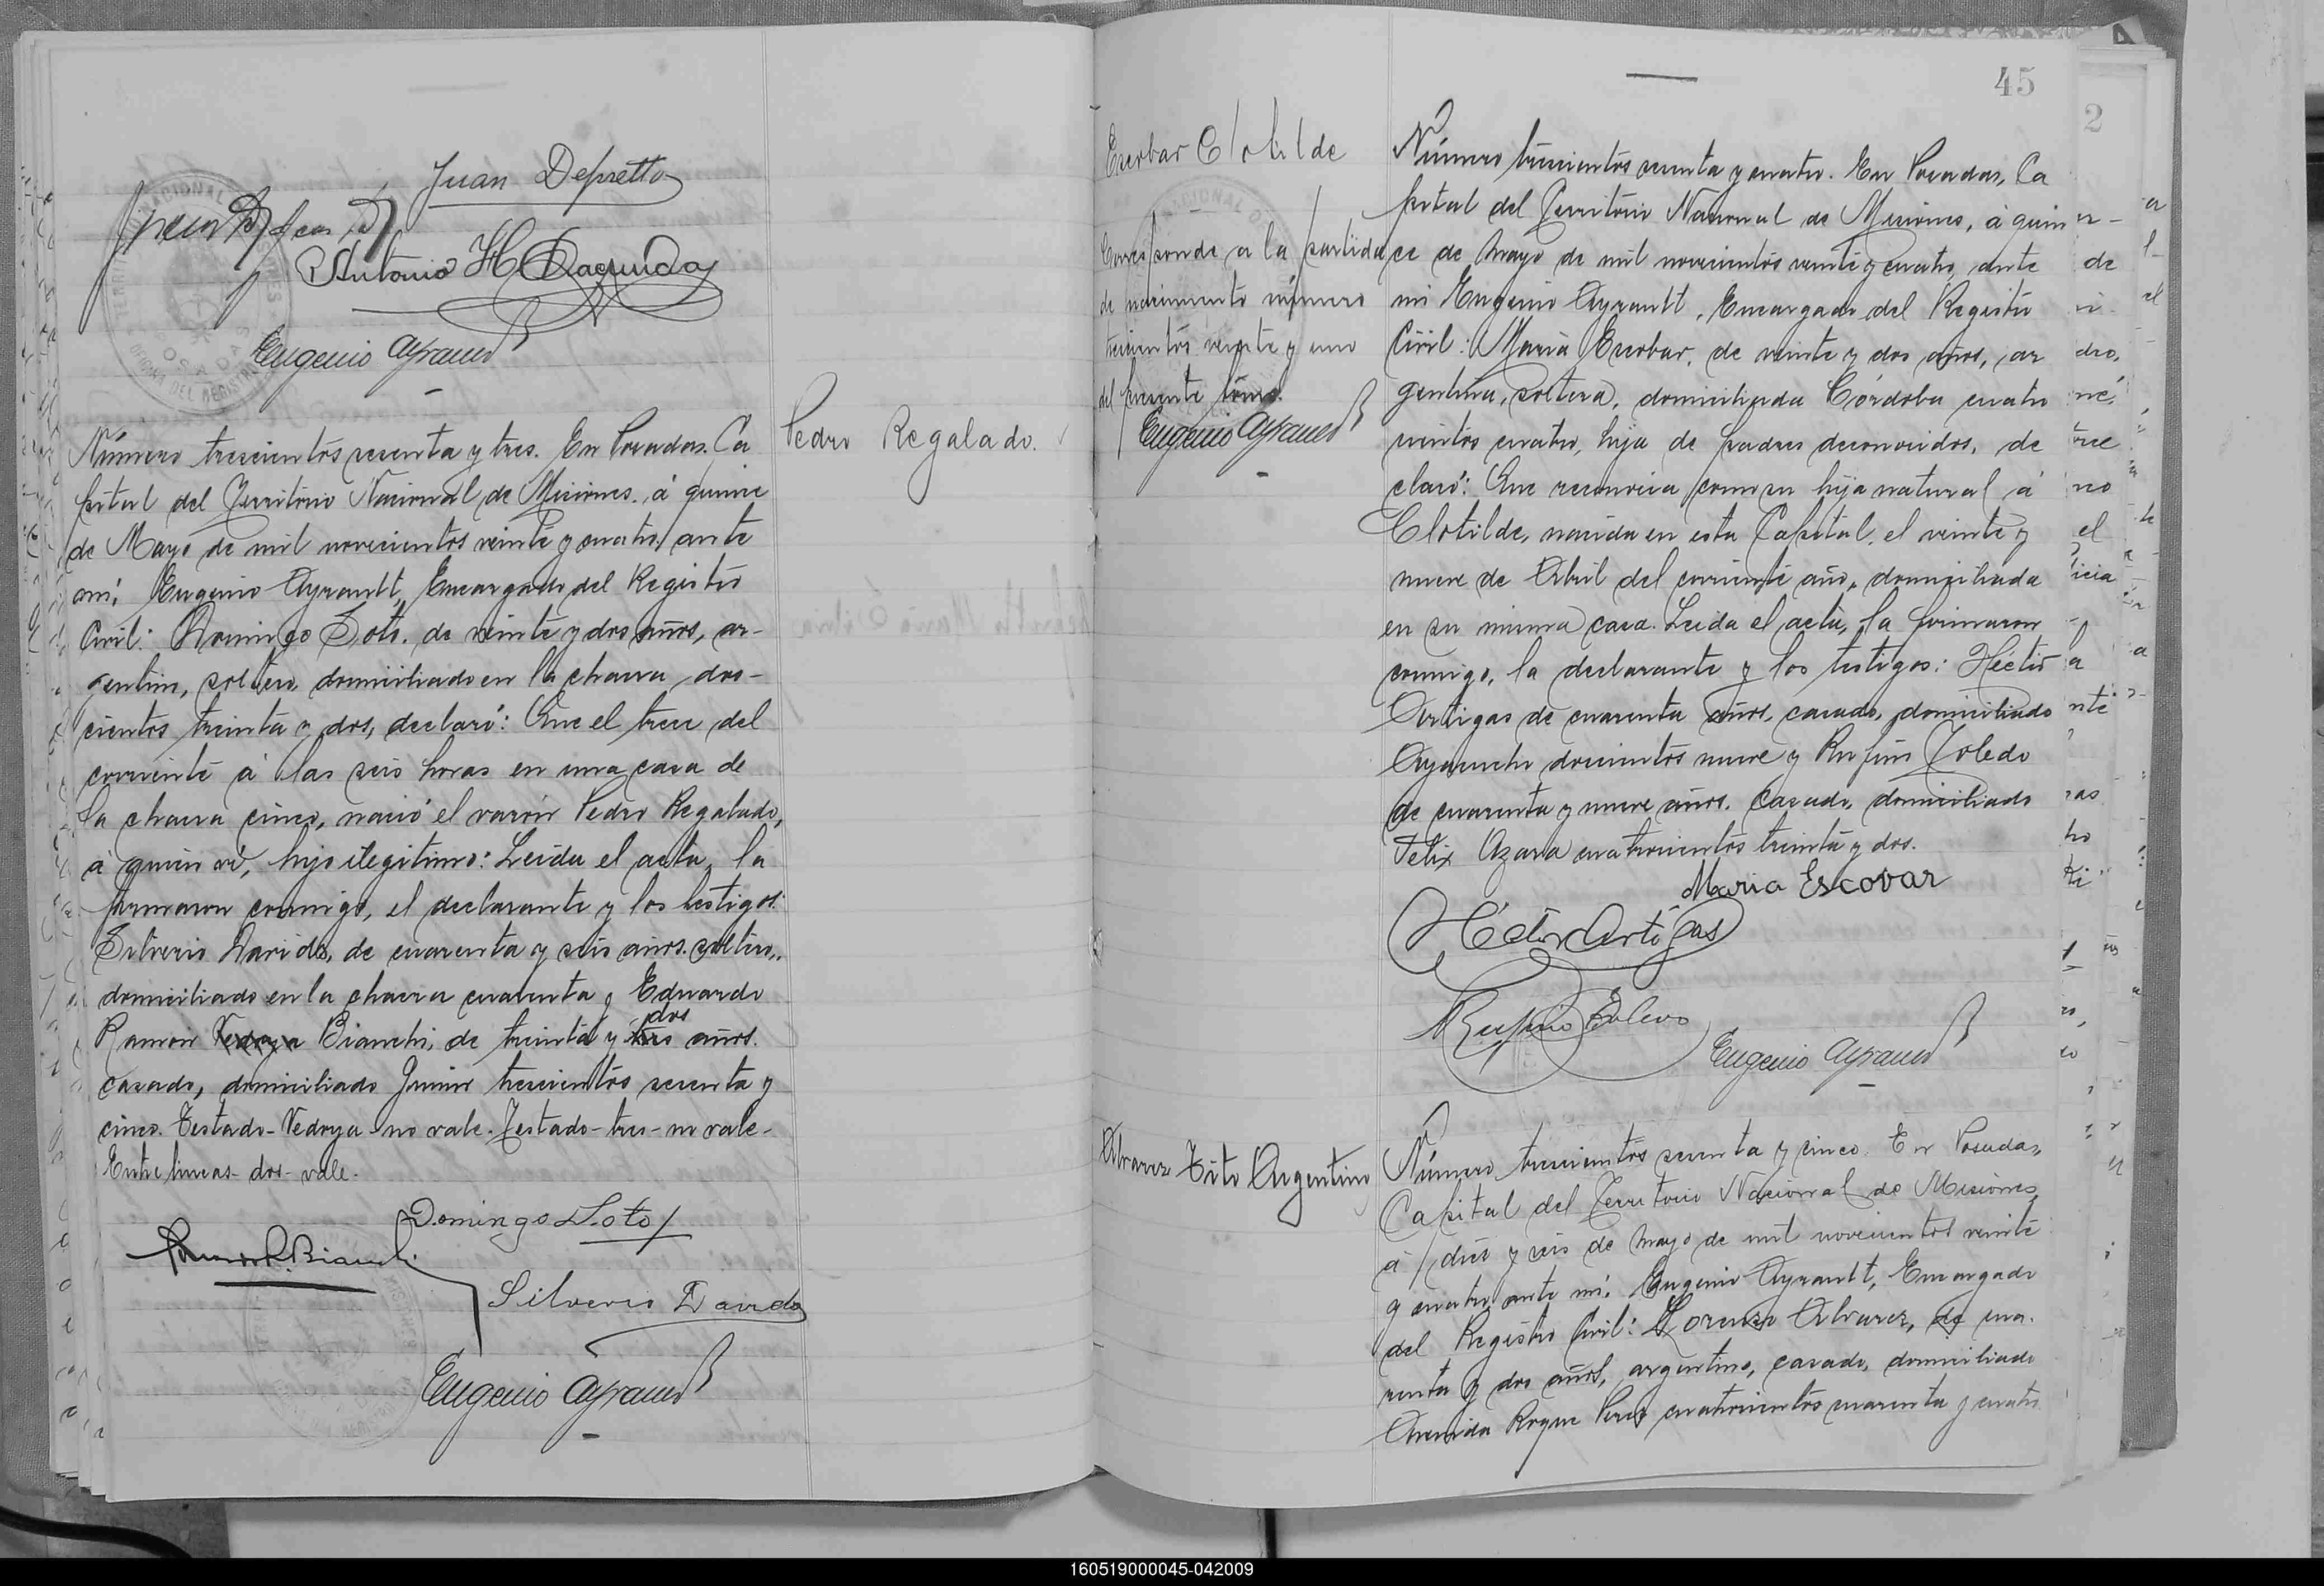 Juan Depretto
Antonio H.
Eugenio Ayrault
Pedro Regalado.
Número trescientos sesenta y tres. En Posadas, Ca
pital del Territorio Nacional de Misiones, á quince
de Mayo de mil novecientos veinte y cuatro, ante
mí, Eugenio Ayrault, Encargado del Registro
Civil: Domingo Soto, de veinte y dos años, ar-
gentino, soltero, domiciliado en la chacra dos-
cientos treinta y dos, declaró: Que el trece del
corriente á las seis horas en una casa de
la chacra cinco, nació el varón Pedro Regalado,
á quien ví, hijo ilegítimo: Leida el acta, la
firmaron conmigo, el declarante y los testigos:
Silverio Davido, de cuarenta y seis años, soltero,
domiciliado en la chacra cuarenta y Eduardo
dos
Ramón Vedoya Bianchi, de treinta y tres años,
casado, domiciliado Junin trescientos sesenta y
cinco. Testado-Vedoya-no vale. Testado-tres-no vale-
Entre lineas-dos-vale.
Domingo Soto
R. Bianchi
Silverio
Eugenio Ayrault
45
2
Escobar Clotilde
Corresponde a la partida
de nacimiento número
trescientos veinte y uno
del presente tomo.
Eugenio Ayrault
Número trescientos sesenta y cuatro. En Posadas, Ca
pital del Territorio Nacional de Misiones, á quin
ce de Mayo de mil novecientos veinte y cuatro, ante
mí Eugenio Ayrault, Encargado del Registro
Civil: María Escobar, de veinte y dos años, ar
gentina, soltera, domiciliada Córdoba cuatro
cientos cuatro, hija de padres desconocidos, de
claró: Que reconocía como su hija natural á
Clotilde, nacida en esta Capital, el veinte y
nueve de Abril del corriente año, domiciliada
en su misma casa. Leida el acta, la firmaron
conmigo, la declarante y los testigos: Héctor
Artigas de cuarenta años, casado, domiciliado
Ayacucho doscientos nueve y Rufino Toledo
de cuarenta y nueve años, casado, domiciliado
Felix Azara cuatrocientos treinta y dos.
Maria Escovar
Héctor Artigas
Rufino Toledo
Eugenio Ayrault
Alvarez Tito Argentino
Número trescientos sesenta y cinco. En Posadas,
Capital del Territorio Nacional de Misiones,
á diez y seis de Mayo de mil novecientos veinte
y cuatro, ante mí, Eugenio Ayrault, Encargado
del Registro Civil: Lorenzo Alvarez, de cua-
renta y dos años, argentino, casado, domiciliado
Avenida Roque Perez cuatrocientos cuarenta y cuatro
160519000045-042009